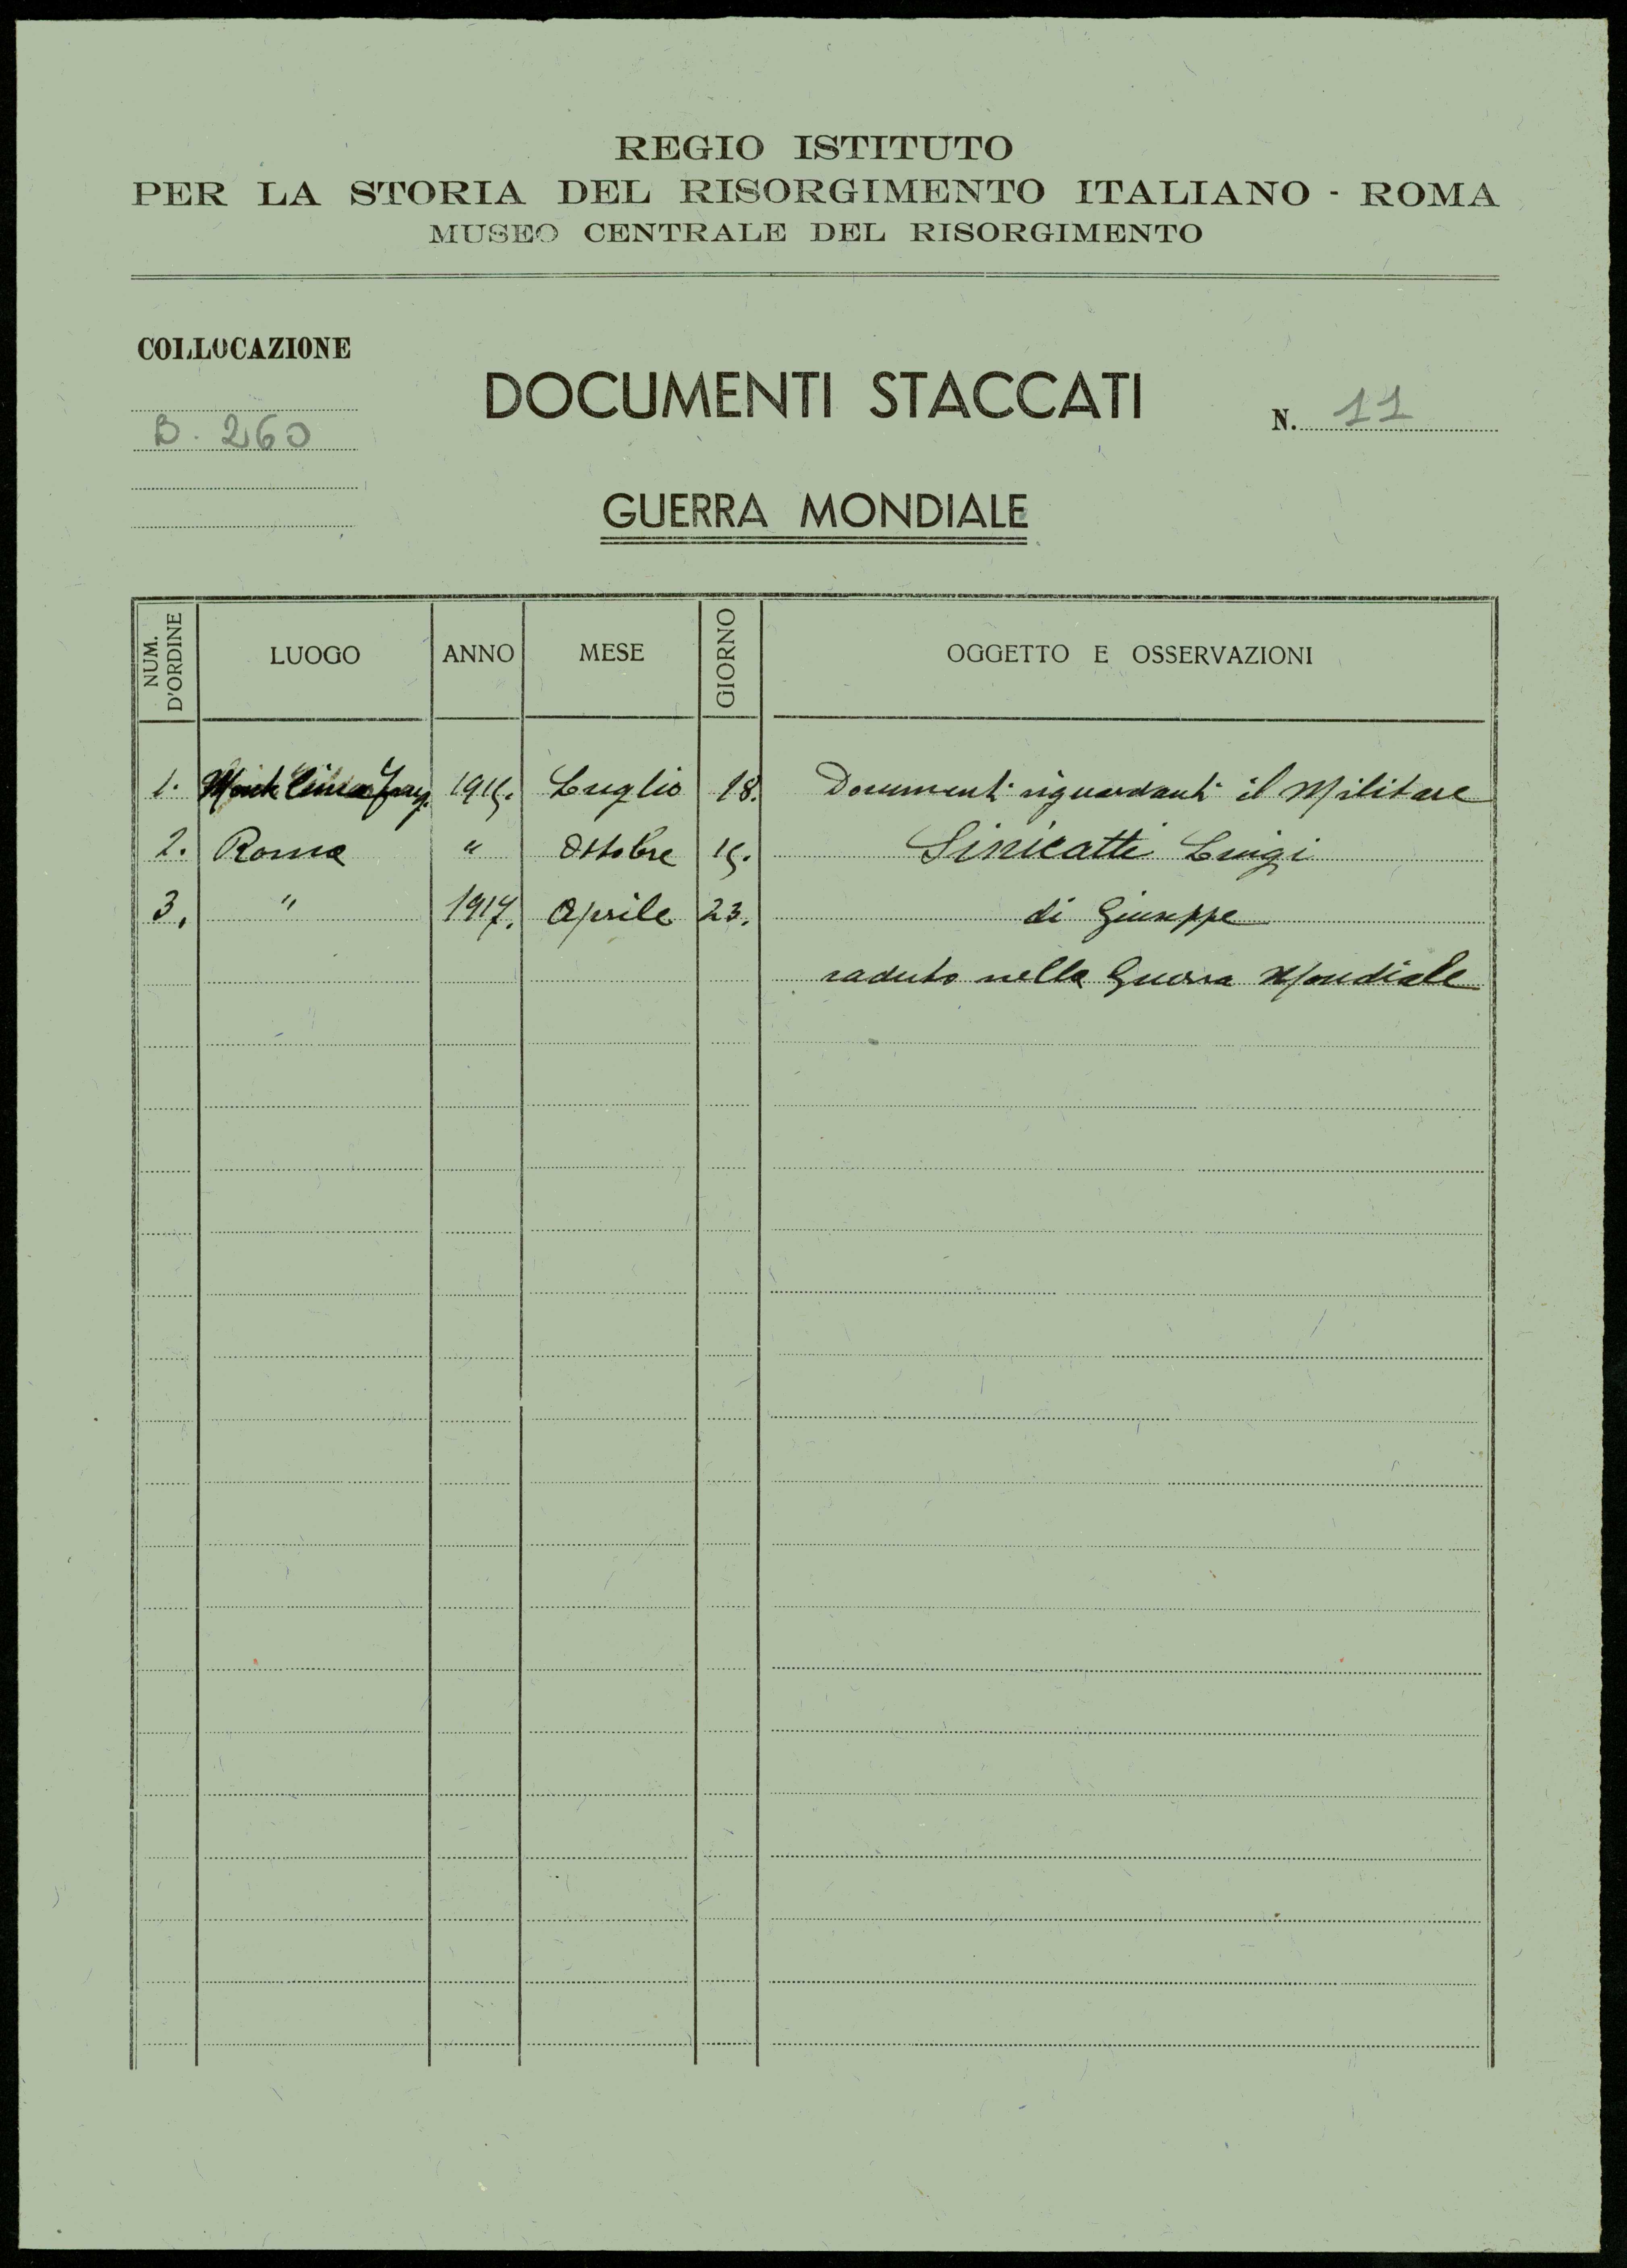 REGIO ISTITUTO
PER LA STORIA DEL RISORGIMENTO ITALIANO - ROMA
MUSEO CENTRALE DEL RISORGIMENTO
COLLOCAZIONE
B. 260
DOCUMENTI STACCATI
N. 11
GUERRA MONDIALE
NUM. D'ORDINE LUOGO ANNO MESE GIORNO OGGETTO E OSSERVAZIONI
1. 1915. Luglio 18. Documenti riguardanti il Militare
2. Roma " Ottobre 15. Sinicatti Luigi
3. " 1917. Aprile 23. di Giuseppe
caduto nella Guerra Mondiale